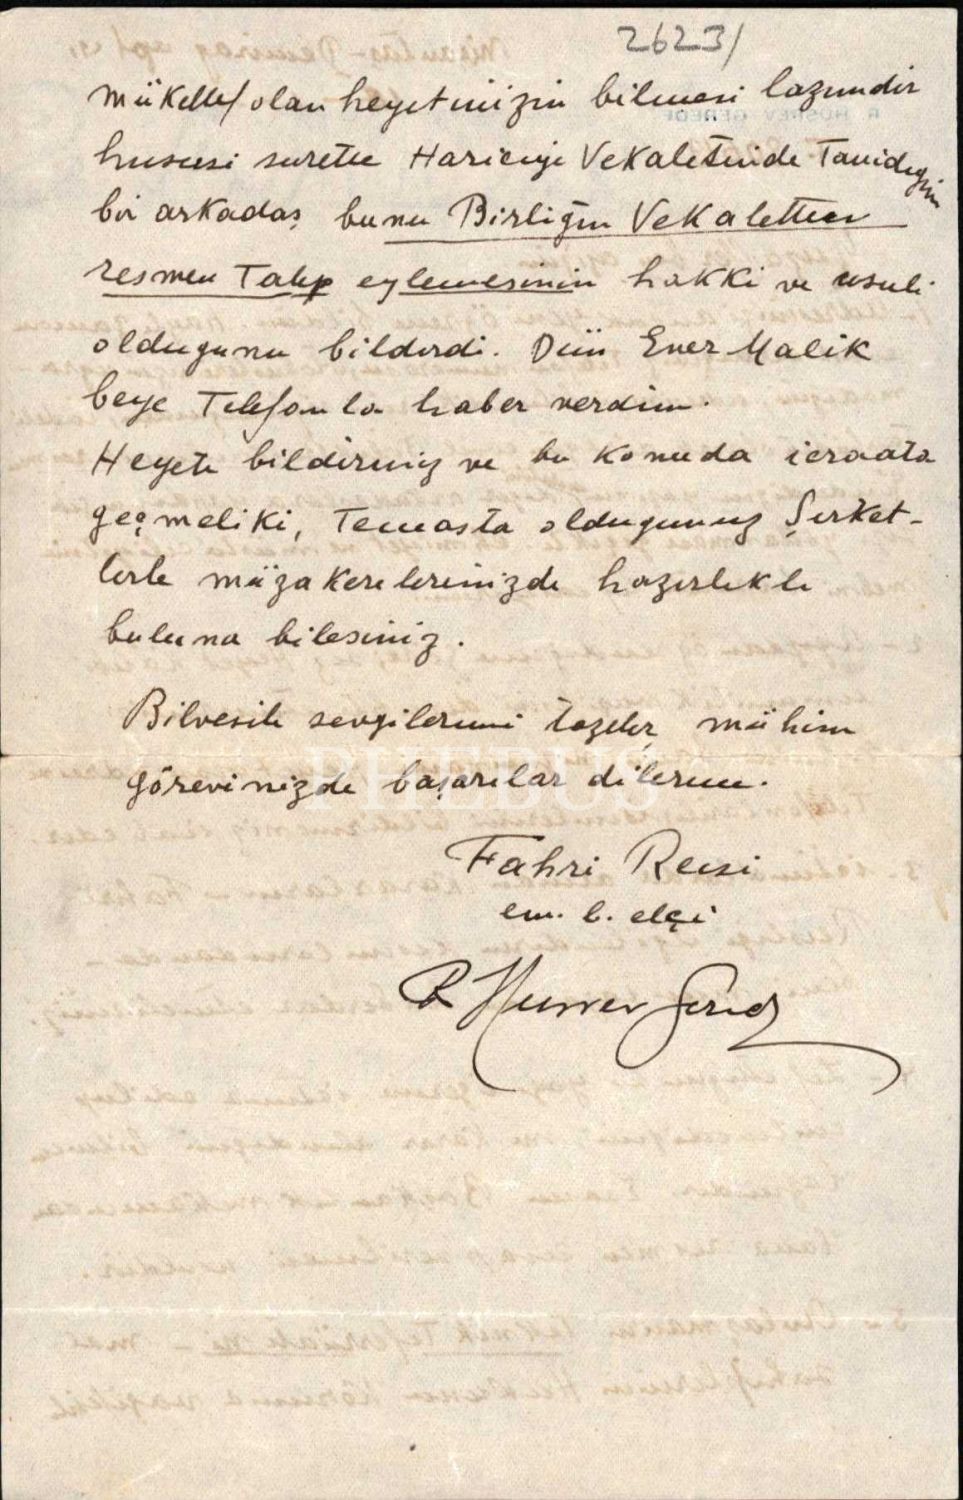 2623/
mükellef olan heyetinizin bilmesi lazımdır
hususi surette Hariciye Vekaletinde Tanıdığım
bir arkadaş bunu Birliğin Vekaletten
resmen Talep eylemesinin hakkı ve usuli
oldugunu bildirdi. Dün Ener Malik
beye Telefonla haber verdim.
Heyete bildiriniz ve bu konuda icraata
geçmeliki, Temasta oldugunuz Şirket-
lerle müzakerelerinizde hazırlıklı
buluna bilesiniz.
Bilvesile sevgilerimi tazeler, mühim
görevinizde başarılar dilerim.
PHEBUS
Fahri Reisi
em. b. elçi
R Hüsrev Gerede